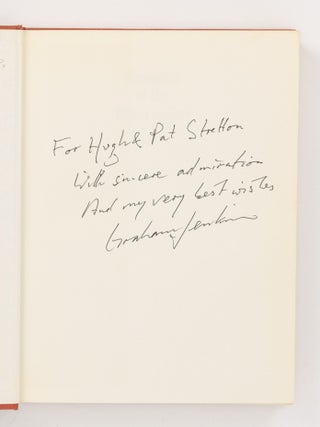 For Hugh & Pat Stretton
With sincere admiration
And my very best wishes
Graham Jenkin